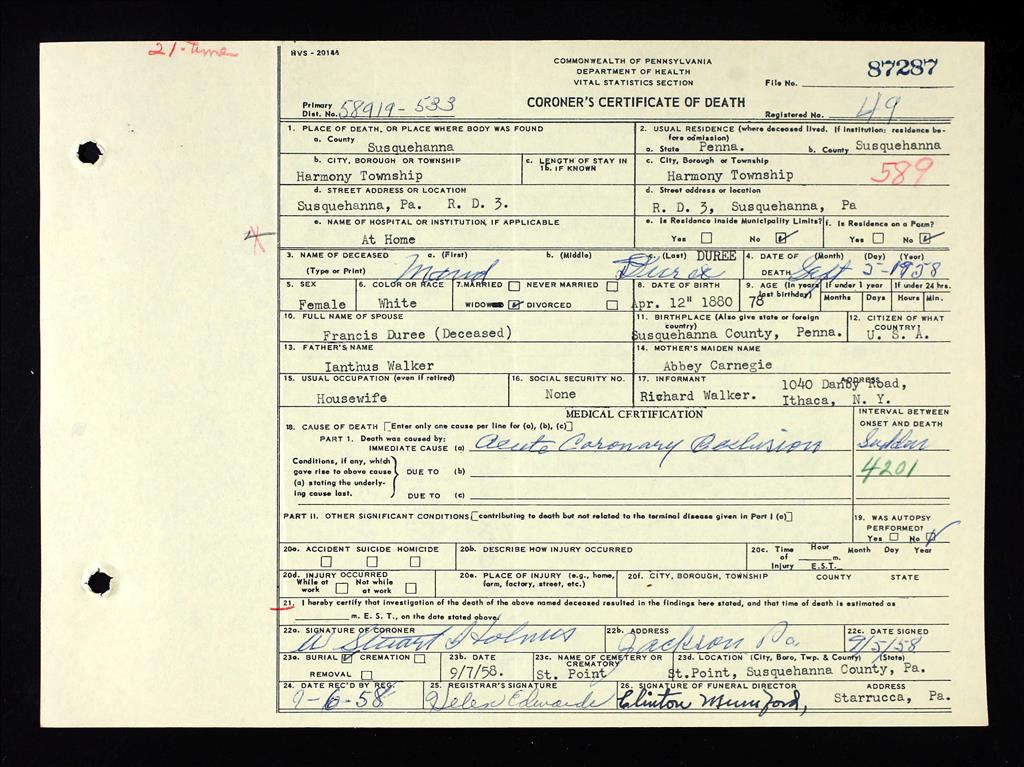 21-time
HVS - 20144
COMMONWEALTH OF PENNSYLVANIA
DEPARTMENT OF HEALTH
VITAL STATISTICS SECTION
87287
File No.
Primary
Dist. No. 58919-533
CORONER'S CERTIFICATE OF DEATH
Registered No. 49
1. PLACE OF DEATH, OR PLACE WHERE BODY WAS FOUND
a. County
Susquehanna
2. USUAL RESIDENCE (where deceased lived. If institution: residence before admission)
a. State Penna. b. County Susquehanna
b. CITY, BOROUGH OR TOWNSHIP
Harmony Township
c. LENGTH OF STAY IN 1b. IF KNOWN
c. City, Borough or Township
Harmony Township
589
d. STREET ADDRESS OR LOCATION
Susquehanna, Pa. R. D. 3.
d. Street address or location
R. D. 3, Susquehanna, Pa
e. NAME OF HOSPITAL OR INSTITUTION, IF APPLICABLE
At Home
e. Is Residence inside Municipality Limits?
Yes No
f. Is Residence on a Farm?
Yes No
3. NAME OF DECEASED a. (First) b. (Middle) c. (Last) DUREE
(Type or Print) Maud Duree
4. DATE OF DEATH (Month) (Day) (Year)
Sept 5-1958
5. SEX
Female
6. COLOR OR RACE
White
7. MARRIED NEVER MARRIED
WIDOWED DIVORCED
8. DATE OF BIRTH
Apr. 12" 1880
9. AGE (In years last birthday)
78
If under 1 year
Months Days
If under 24 hrs.
Hours Min.
10. FULL NAME OF SPOUSE
Francis Duree (Deceased)
11. BIRTHPLACE (Also give state or foreign country)
Susquehanna County, Penna.
12. CITIZEN OF WHAT COUNTRY?
U. S. A.
13. FATHER'S NAME
Ianthus Walker
14. MOTHER'S MAIDEN NAME
Abbey Carnegie
15. USUAL OCCUPATION (even if retired)
Housewife
16. SOCIAL SECURITY NO.
None
17. INFORMANT ADDRESS
Richard Walker. 1040 Danby Road,
Ithaca, N. Y.
MEDICAL CERTIFICATION
18. CAUSE OF DEATH [Enter only one cause per line for (a), (b), (c)]
INTERVAL BETWEEN ONSET AND DEATH
PART 1. Death was caused by:
IMMEDIATE CAUSE (a) Acute Coronary Occlusion
Sudden
4201
Conditions, if any, which gave rise to above cause (a) stating the underlying cause last.
DUE TO (b)
DUE TO (c)
PART II. OTHER SIGNIFICANT CONDITIONS [contributing to death but not related to the terminal disease given in Part I (a)]
19. WAS AUTOPSY PERFORMED?
Yes No
20a. ACCIDENT SUICIDE HOMICIDE
20b. DESCRIBE HOW INJURY OCCURRED
20c. Time of Injury Hour m. E.S.T. Month Day Year
20d. INJURY OCCURRED
While at work Not while at work
20e. PLACE OF INJURY (e.g., home, farm, factory, street, etc.)
20f. CITY, BOROUGH, TOWNSHIP COUNTY STATE
21. I hereby certify that investigation of the death of the above named deceased resulted in the findings here stated, and that time of death is estimated as
m. E. S. T., on the date stated above.
22a. SIGNATURE OF CORONER
W Stuart Holmes
22b. ADDRESS
Jackson Pa.
22c. DATE SIGNED
9/5/58
23a. BURIAL CREMATION
REMOVAL
23b. DATE
9/7/58.
23c. NAME OF CEMETERY OR CREMATORY
St. Point
23d. LOCATION (City, Boro, Twp. & County) (State)
St.Point, Susquehanna County, Pa.
24. DATE REC'D BY REG.
9-6-58
25. REGISTRAR'S SIGNATURE
Helen Edwards
26. SIGNATURE OF FUNERAL DIRECTOR
Clinton Mumford,
ADDRESS
Starrucca, Pa.